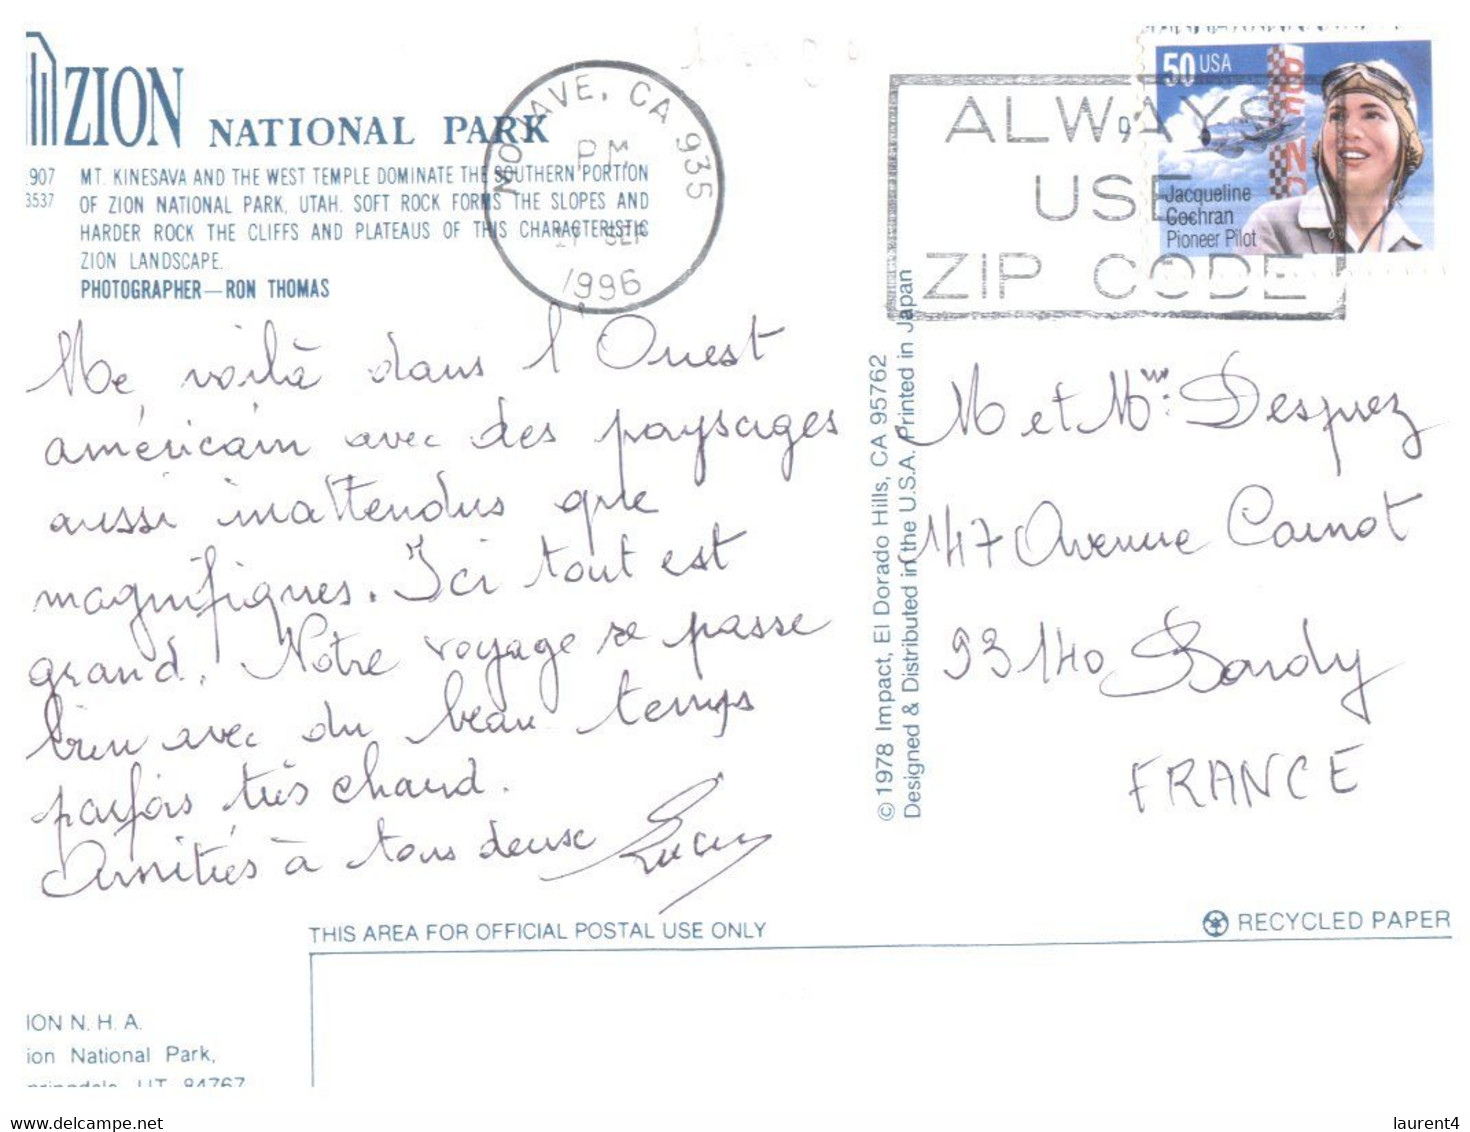 ZION NATIONAL PARK
.907 MT. KINESAVA AND THE WEST TEMPLE DOMINATE THE SOUTHERN PORTION
3537 OF ZION NATIONAL PARK, UTAH. SOFT ROCK FORMS THE SLOPES AND
HARDER ROCK THE CLIFFS AND PLATEAUS OF THIS CHARACTERISTIC
ZION LANDSCAPE.
PHOTOGRAPHER—RON THOMAS
MOJAVE, CA 935
PM
SEP
1996
ALWAYS
USE
ZIP CODE
50 USA
Jacqueline
Cochran
Pioneer Pilot
Me voilà dans l'Ouest
américain avec des paysages
aussi inattendus que
magnifiques. Ici tout est
grand. Notre voyage se passe
bien avec du beau temps
parfois très chaud.
Amitiés à tous deux
© 1978 Impact, El Dorado Hills, CA 95762
Designed & Distributed in the U.S.A. Printed in Japan
M et Mme Desprez
147 Avenue Carnot
93140 Bondy
FRANCE
THIS AREA FOR OFFICIAL POSTAL USE ONLY
RECYCLED PAPER
ION N. H. A.
ion National Park,
pringdale, UT 84767
laurent4